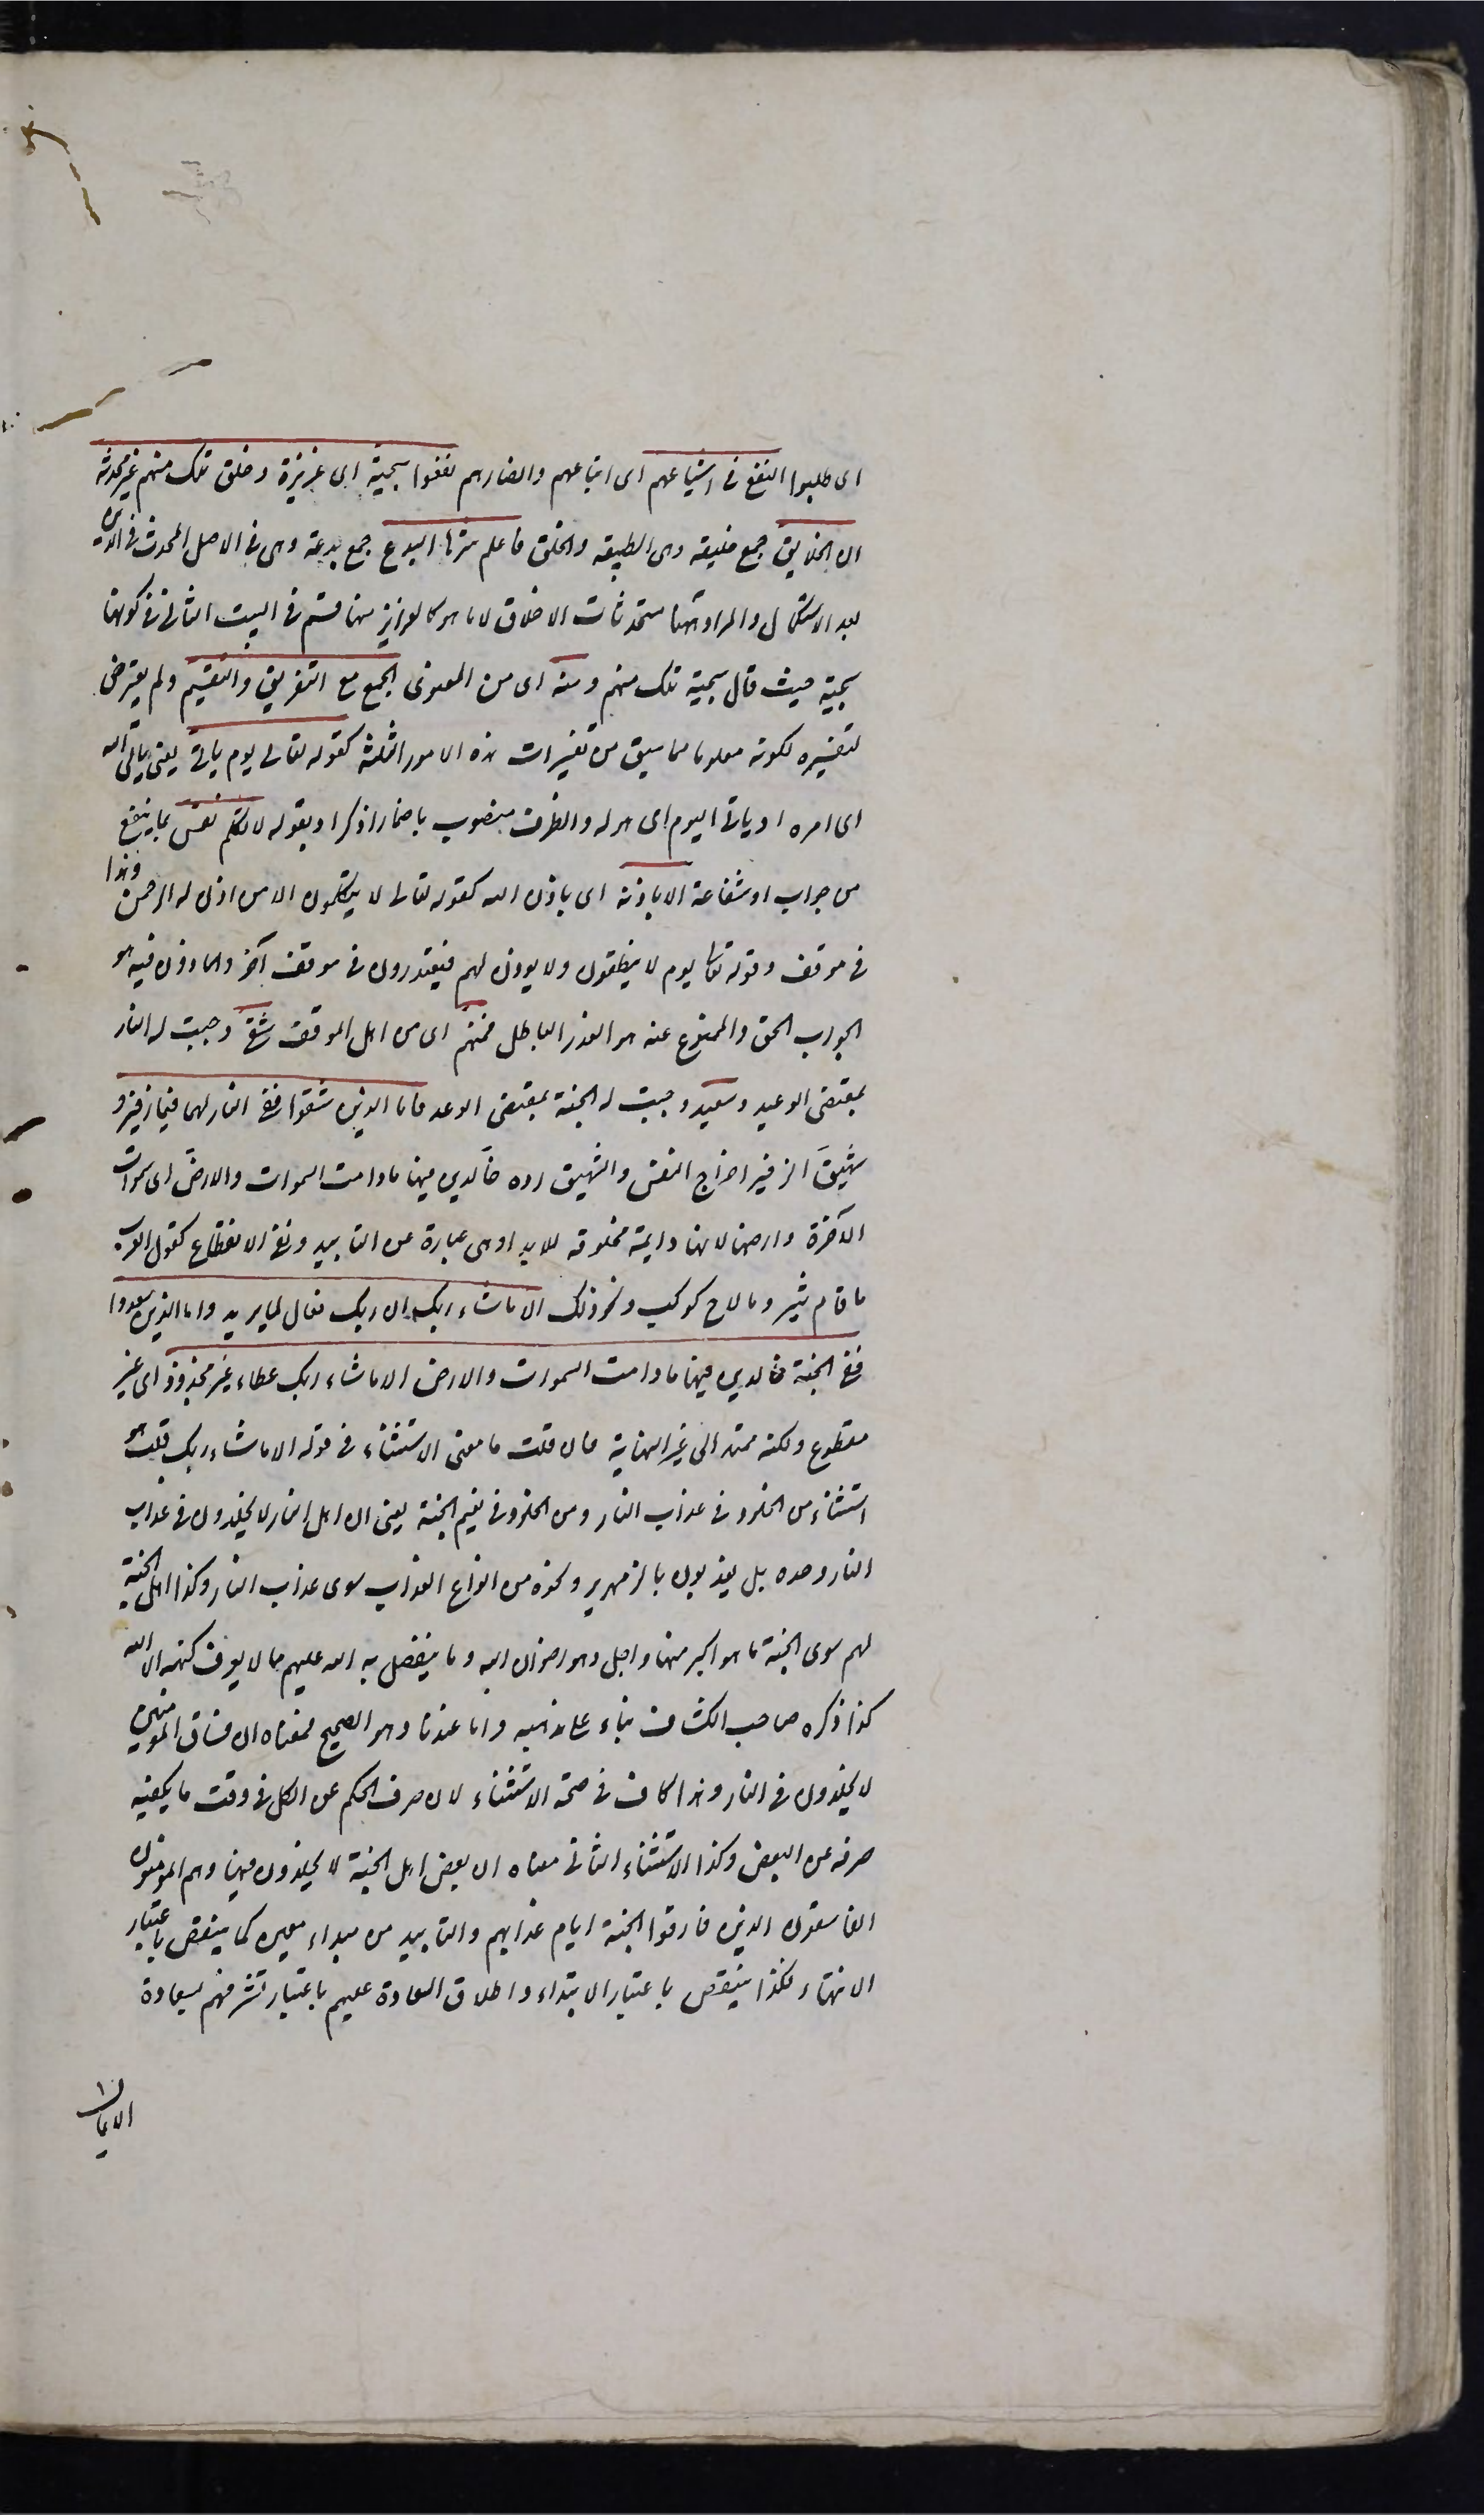 اى طلبوا النفع فى اشياعهم اى اتباعهم وانصارهم نفعوا سجية اى غريزة وخلق تلك منهم غير محدثة
ان الخلايق جمع خليقة وهى الطبيعة والخلق فاعلم شرها البدع جمع بدعة وهى فى الاصل المحدث فى الدين
بعد الاستكمال والمراد ههنا مستحدثات الاخلاق لا ما هو كالغرايز منها قسم فى البيت الثانى فى كونها
سجية حيث قال سجية تلك منهم ومنه اى من المعنوى الجمع مع التفريق والتقسيم ولم يتعرض
لتفسيره لكونه معلوما مما سبق من تفسيرات هذه الامور الثلثة كقوله تعالى يوم يات يعنى ياتى الله
اى امره او ياتى اليوم اى هوله والظرف منصوب باضمار اذكر او بقوله لا تكلم نفس بما ينفع
من جواب او شفاعة الا باذنه اى باذن الله كقوله تعالى لا يتكلمون الا من اذن له الرحمن وهذا
فى موقف وقوله تعا يوم لا ينطقون ولا يوذن لهم فيعتذرون فى موقف آخر والماذون فيه هو
الجواب الحق والممنوع عنه هو العذر الباطل فمنهم اى من اهل الموقف شقى وجبت له النار
بمقتضى الوعيد وسعيد وجبت له الجنة بمقتضى الوعد فاما الذين شقوا ففى النار لهم فيها زفير و
شهيق الزفير اخراج النفس والشهيق رده خالدين فيها ما دامت السموات والارض اى سموات
الآخرة وارضها لانها دايمة مخلوقة للابد او هى عبارة عن التابيد ونفى الانقطاع كقول العرب
ما قام ثبير وما لاح كوكب ونحو ذلك الا ما شاء ربك ان ربك فعال لما يريد واما الذين سعدوا
ففى الجنة خالدين فيها ما دامت السموات والارض الا ما شاء ربك عطاء غير مجذوذ اى غير
مقطوع ولكنه ممتد الى غير النهاية فان قلت ما معنى الاستثناء فى قوله الا ما شاء ربك قلت هو
استثناء من الخلود فى عذاب النار ومن الخلود فى نعيم الجنة يعنى ان اهل النار لا يخلدون فى عذاب
النار وحده بل يعذبون بالزمهرير ونحوه من انواع العذاب سوى عذاب النار وكذا اهل الجنة
لهم سوى الجنة ما هو اكبر منها واجل وهو رضوان الله وما يتفضل به الله عليهم مما لا يعرف كنهه الا الله
كذا ذكره صاحب الكشاف بناء على مذهبه واما عندنا وهو الصحيح فمعناه ان فساق المومنين
لا يخلدون فى النار وهذا كاف فى صحة الاستثناء لان صرف الحكم عن الكل فى وقت ما يكفيه
صرفه عن البعض وكذا الاستثناء الثانى معناه ان بعض اهل الجنة لا يخلدون فيها وهم المومنون
الفاسقون الذين فارقوا الجنة ايام عذابهم والتابيد من مبداء معين كما ينتقض باعتبار
الانتهاء فكذا ينتقض باعتبار الابتداء واطلاق السعادة عليهم باعتبار تشرفهم بسعادة
الايمان